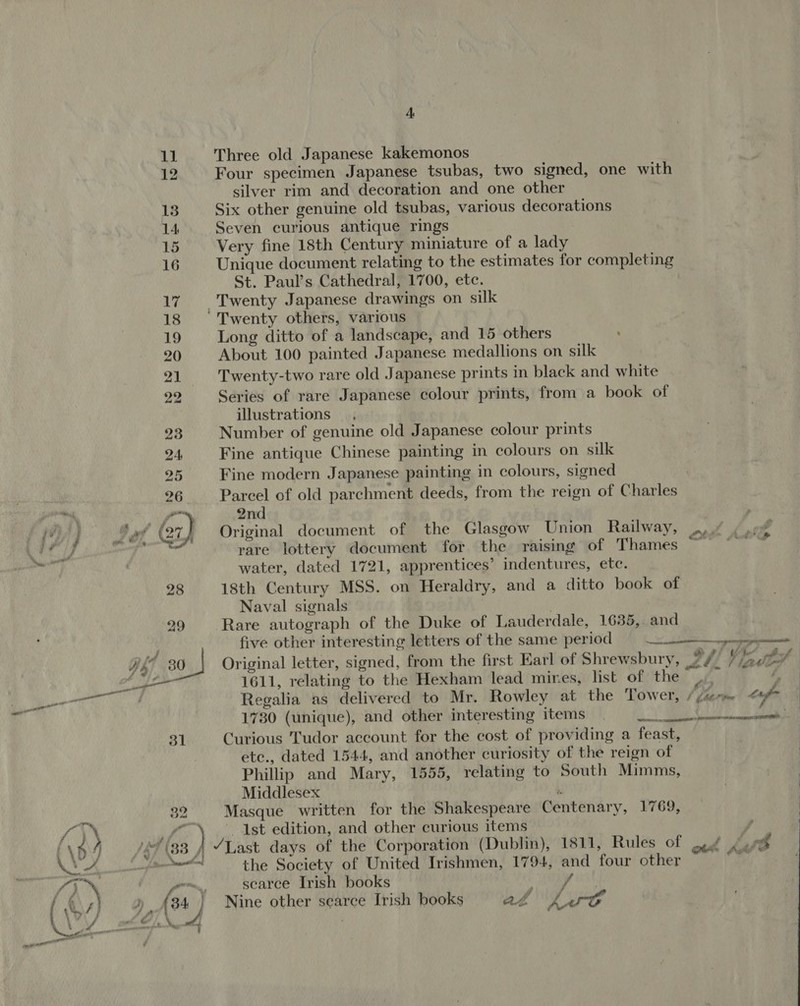 4
11 Three old Japanese kakemonos
12 Four specimen Japanese tsubas, two signed, one with
silver rim and decoration and one other
13 Six other genuine old tsubas, various decorations
14 Seven curious antique rings
15 Very fine 18th Century miniature of a lady
16 Unique document relating to the estimates for completing
St. Paul's Cathedral, 1700, etc.
17 Twenty Japanese drawings on silk
18 Twenty others, various
19 Long ditto of a landscape, and 15 others
20 About 100 painted Japanese medallions on silk
21 Twenty-two rare old Japanese prints in black and white
22 Series of rare Japanese colour prints, from a book of
illustrations
23 Number of genuine old Japanese colour prints
24 Fine antique Chinese painting in colours on silk
25 Fine modern Japanese painting in colours, signed
26 Parcel of old parchment deeds, from the reign of Charles
2nd
27 Original document of the Glasgow Union Railway,
rare lottery document for the raising of Thames
water, dated 1721, apprentices' indentures, etc.
28 18th Century MSS. on Heraldry, and a ditto book of
Naval signals
29 Rare autograph of the Duke of Lauderdale, 1635, and
five other interesting letters of the same period
30 Original letter, signed, from the first Earl of Shrewsbury,
1611, relating to the Hexham lead mines, list of the
Regalia as delivered to Mr. Rowley at the Tower,
1730 (unique), and other interesting items
31 Curious Tudor account for the cost of providing a feast,
etc., dated 1544, and another curiosity of the reign of
Phillip and Mary, 1555, relating to South Mimms,
Middlesex
32 Masque written for the Shakespeare Centenary, 1769,
1st edition, and other curious items
33 Last days of the Corporation (Dublin), 1811, Rules of
the Society of United Irishmen, 1794, and four other
scarce Irish books
34 Nine other scarce Irish books